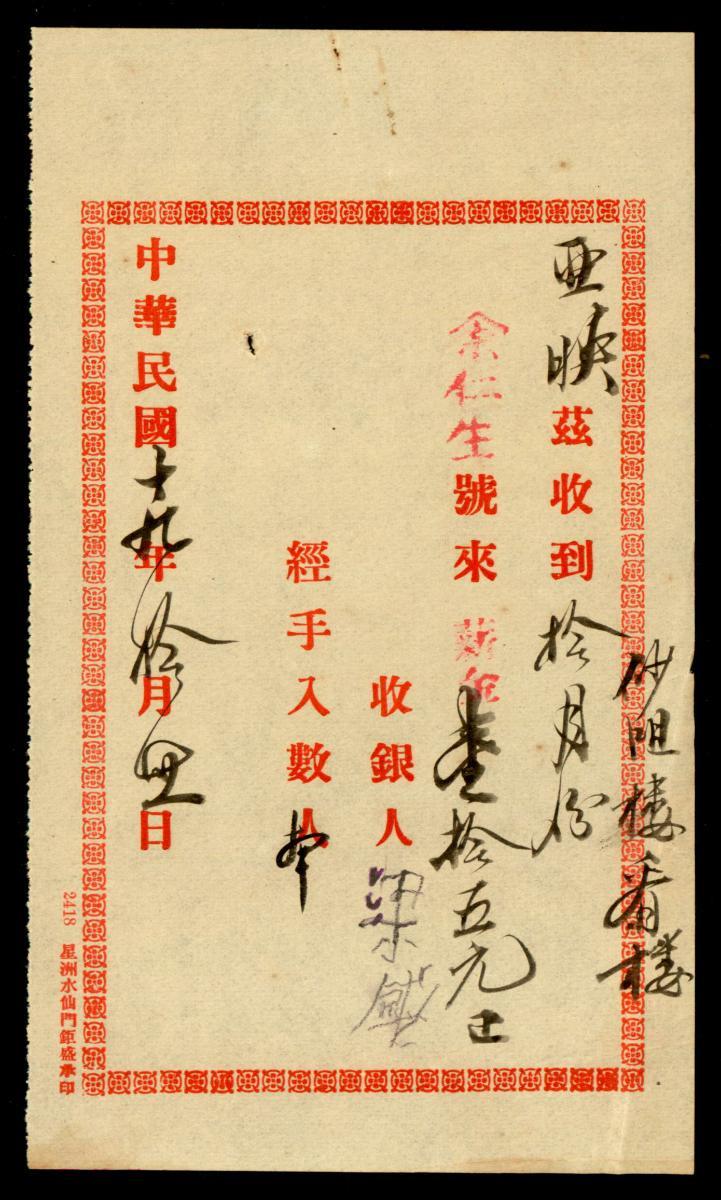 砂阻樓看樓
亜映茲收到拾月份
余仁生號來薪金壹拾五元正
收銀人梁
經手入數人
中華民國十九年拾月卅日
2418 星洲水仙門鉅盛承印